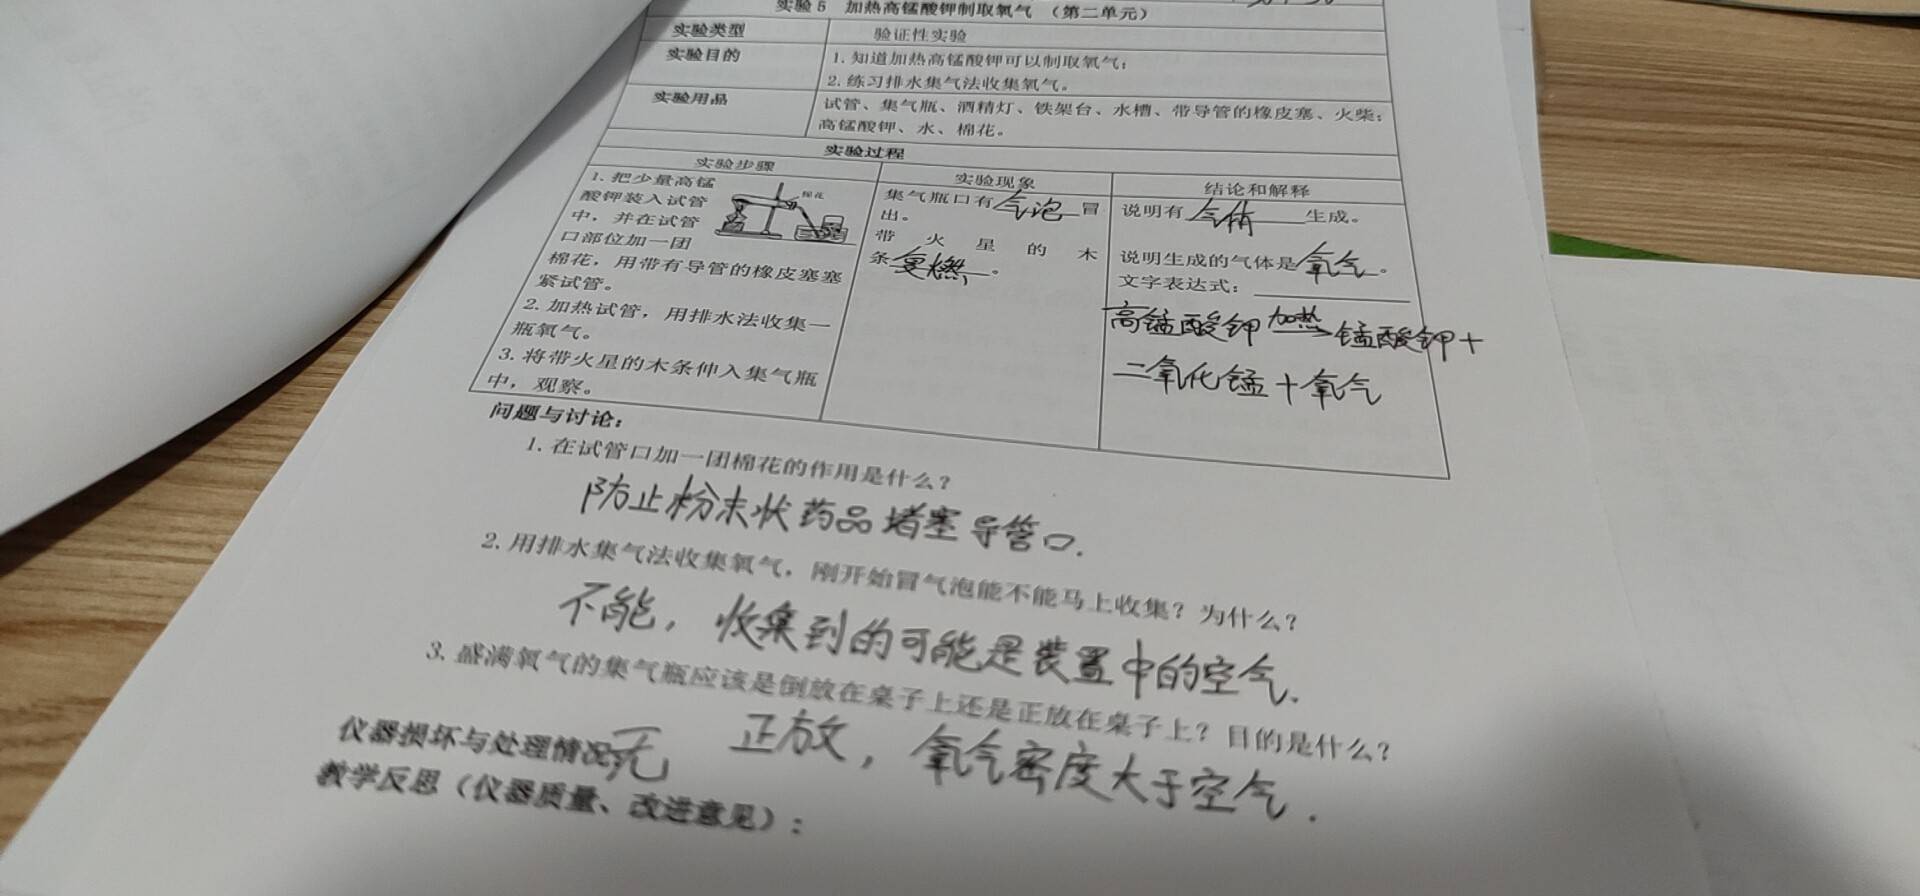 实验5 加热高锰酸钾制取氧气 (第二单元)
实验类型 验证性实验
实验目的 1. 知道加热高锰酸钾可以制取氧气；
2. 练习排水集气法收集氧气。
实验用品 试管、集气瓶、酒精灯、铁架台、水槽、带导管的橡皮塞、火柴；
高锰酸钾、水、棉花。
实验过程
实验步骤
1. 把少量高锰
酸钾装入试管
中，并在试管
口部位加一团
棉花，用带有导管的橡皮塞塞
紧试管。
2. 加热试管，用排水法收集一
瓶氧气。
3. 将带火星的木条伸入集气瓶
中，观察。
棉花
实验现象
集气瓶口有气泡冒
出。
带火星的木
条复燃。
结论和解释
说明有气体生成。
说明生成的气体是氧气。
文字表达式：
高锰酸钾 加热→ 锰酸钾+
二氧化锰+氧气
问题与讨论：
1. 在试管口加一团棉花的作用是什么？
防止粉末状药品堵塞导管口.
2. 用排水集气法收集氧气，刚开始冒气泡能不能马上收集？为什么？
不能，收集到的可能是装置中的空气.
3. 盛满氧气的集气瓶应该是倒放在桌子上还是正放在桌子上？目的是什么？
正放，氧气密度大于空气.
仪器损坏与处理情况 无
教学反思（仪器质量、改进意见）：